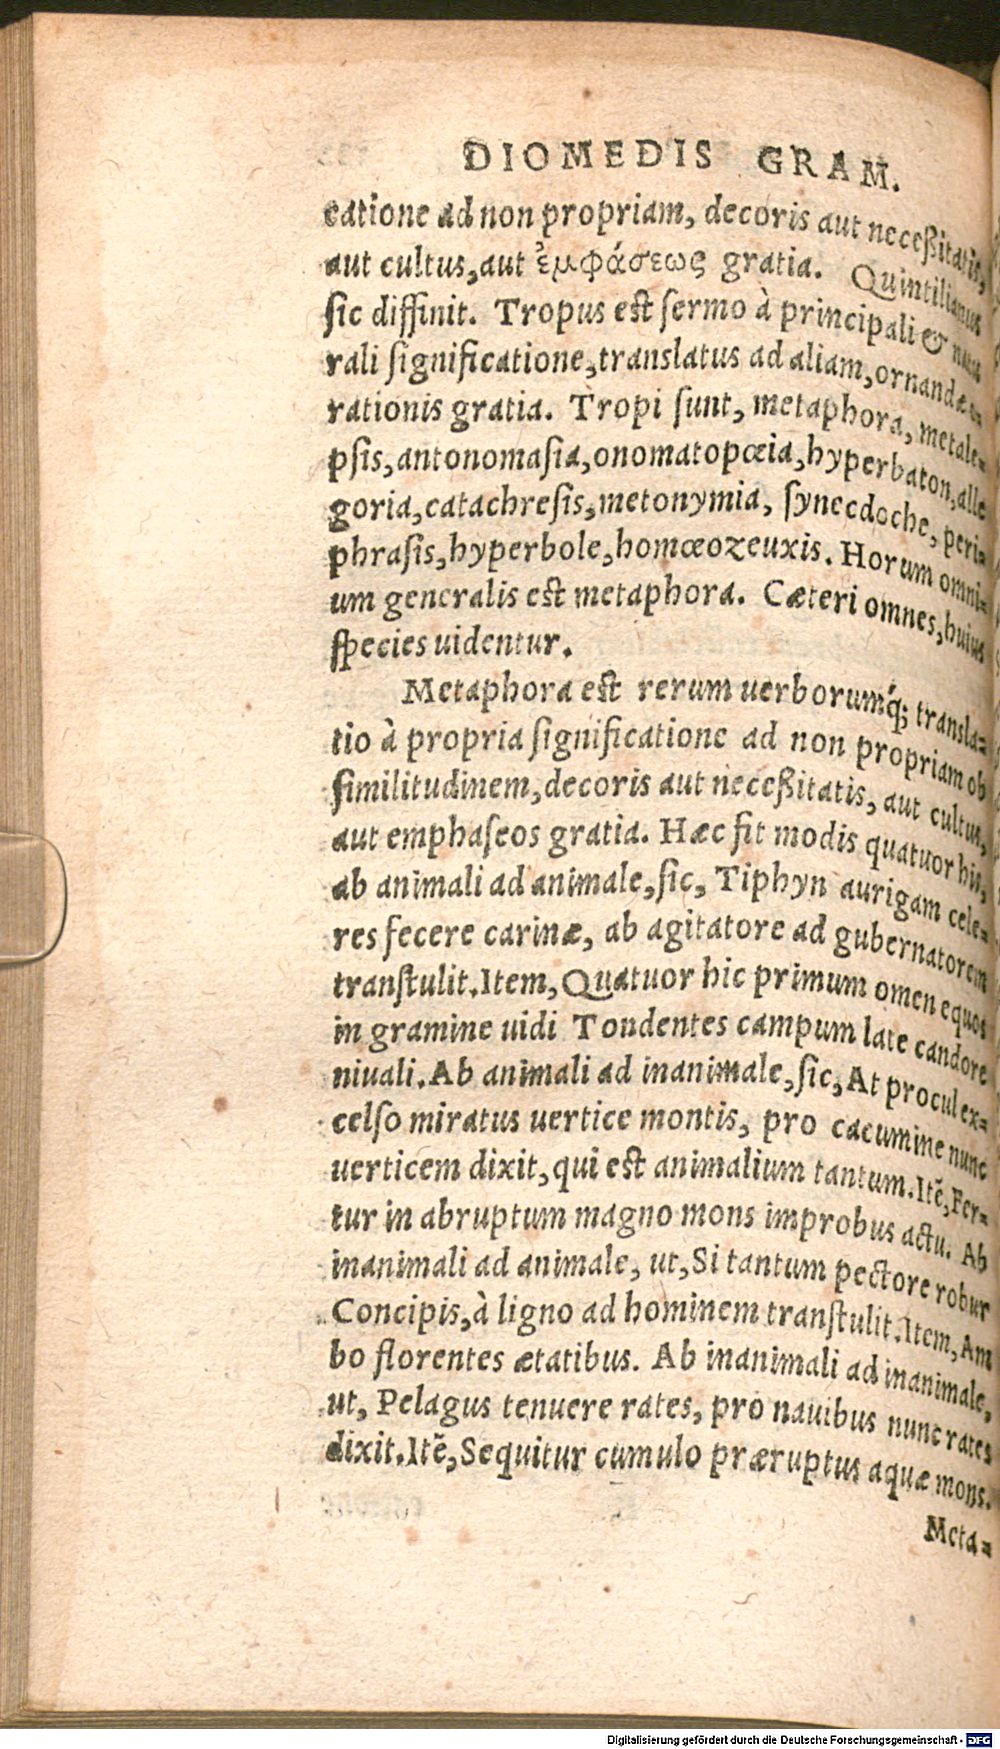 DIOMEDIS GRAM.
catione ad non propriam, decoris aut neceßitatis,
aut cultus, aut ἐμφάσεως gratia. Quintilianus
sic diffinit. Tropus est sermo à principali & natu
rali significatione, translatus ad aliam, ornandæ o-
rationis gratia. Tropi sunt, metaphora, metale=
psis, antonomasia, onomatopœia, hyperbaton, alle
goria, catachresis, metonymia, synecdoche, peri=
phrasis, hyperbole, homœozeuxis. Horum omni=
um generalis est metaphora. Cæteri omnes, huius
species uidentur.
Metaphora est rerum uerborumq́; transla=
tio à propria significatione ad non propriam ob
similitudinem, decoris aut neceßitatis, aut cultus,
aut emphaseos gratia. Hæc fit modis quatuor his,
ab animali ad animale, sic, Tiphyn aurigam cele=
res fecere carinæ, ab agitatore ad gubernatorem
transtulit. Item, Quatuor hic primum omen equos
in gramine uidi Tondentes campum late candore
niuali. Ab animali ad inanimale, sic, At procul ex=
celso miratus uertice montis, pro cacumine nunc
uerticem dixit, qui est animalium tantum. Itē, Fer=
tur in abruptum magno mons improbus actu. Ab
inanimali ad animale, ut, Si tantum pectore robur
Concipis, à ligno ad hominem transtulit. Item, Am
bo florentes ætatibus. Ab inanimali ad inanimale,
ut, Pelagus tenuere rates, pro nauibus nunc rates
dixit. Itē, Sequitur cumulo præruptus aquæ mons.
Meta=
Digitalisierung gefördert durch die Deutsche Forschungsgemeinschaft - DFG